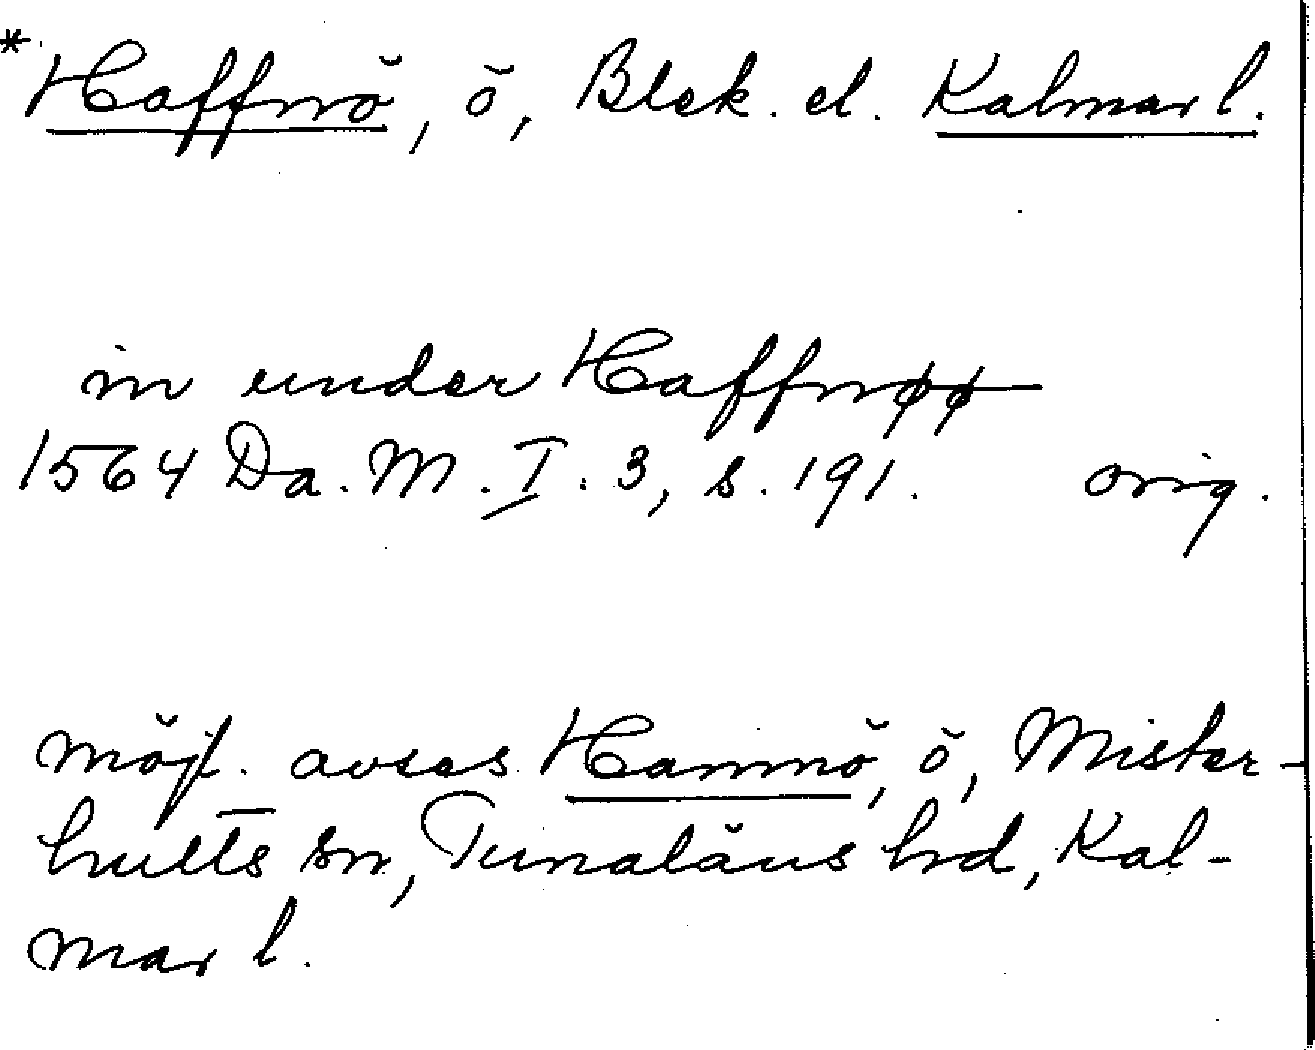 *Haffnö, ö, Blek. el. Kalmar l.
in under Haffnøø
1564 Da. M. I. 3, s. 191. orig.
möjl. avses Hamnö, ö, Mister-
hults sn, Tunaläns hd, Kal-
mar l.